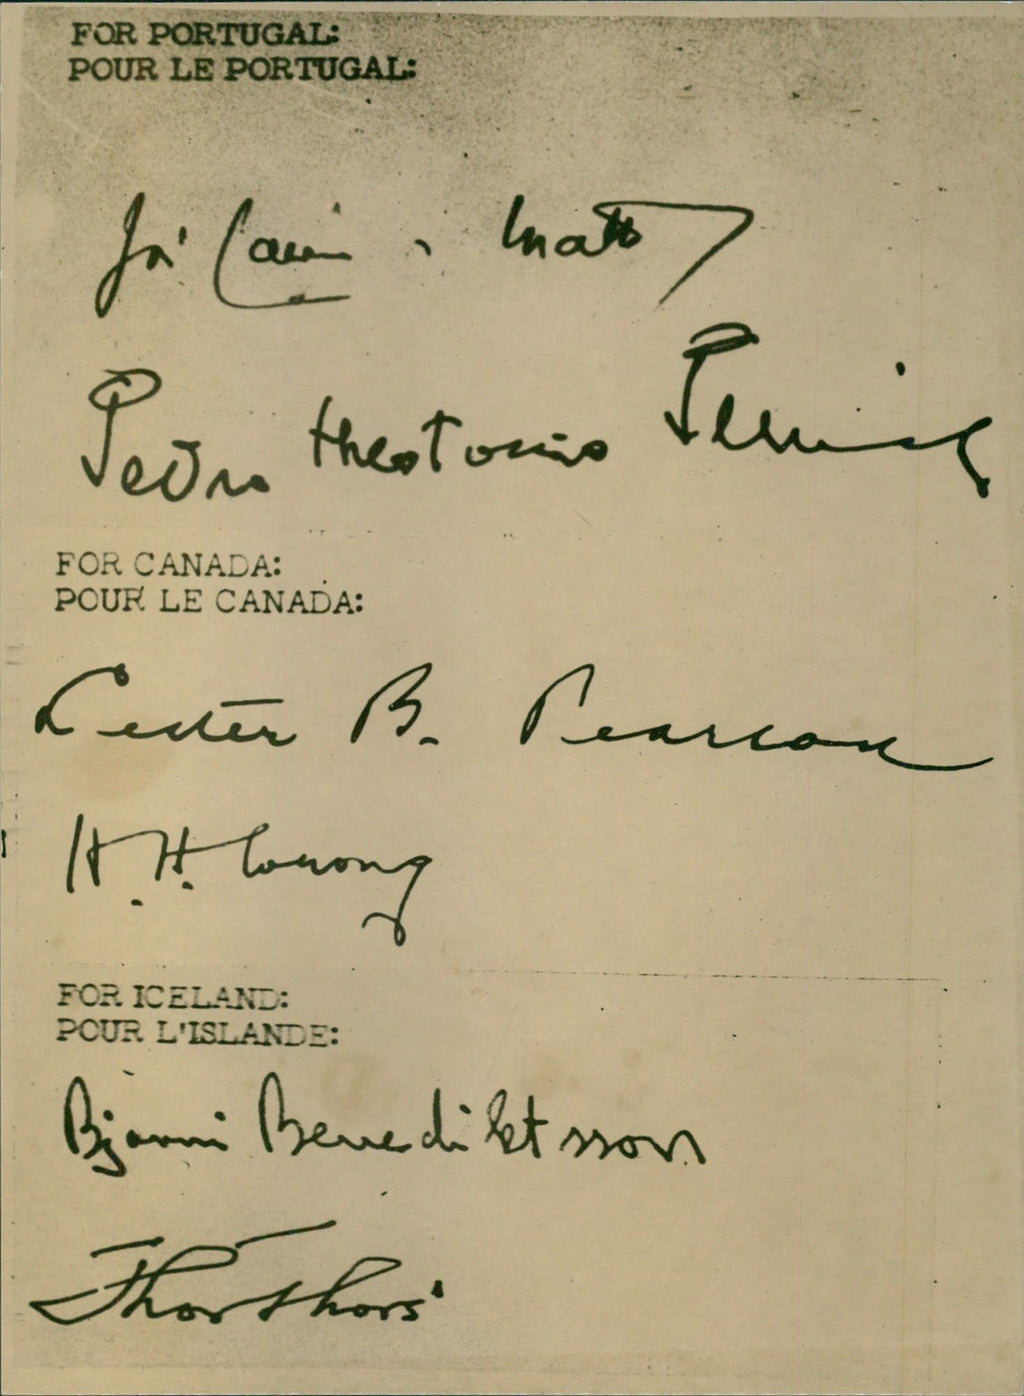 FOR PORTUGAL:
POUR LE PORTUGAL:
José Caeiro da Matta
Pedro Theotonio Pereira
FOR CANADA:
POUR LE CANADA:
Lester B. Pearson
H. H. Wrong
FOR ICELAND:
POUR L'ISLANDE:
Bjarni Benediktsson
Thor Thors